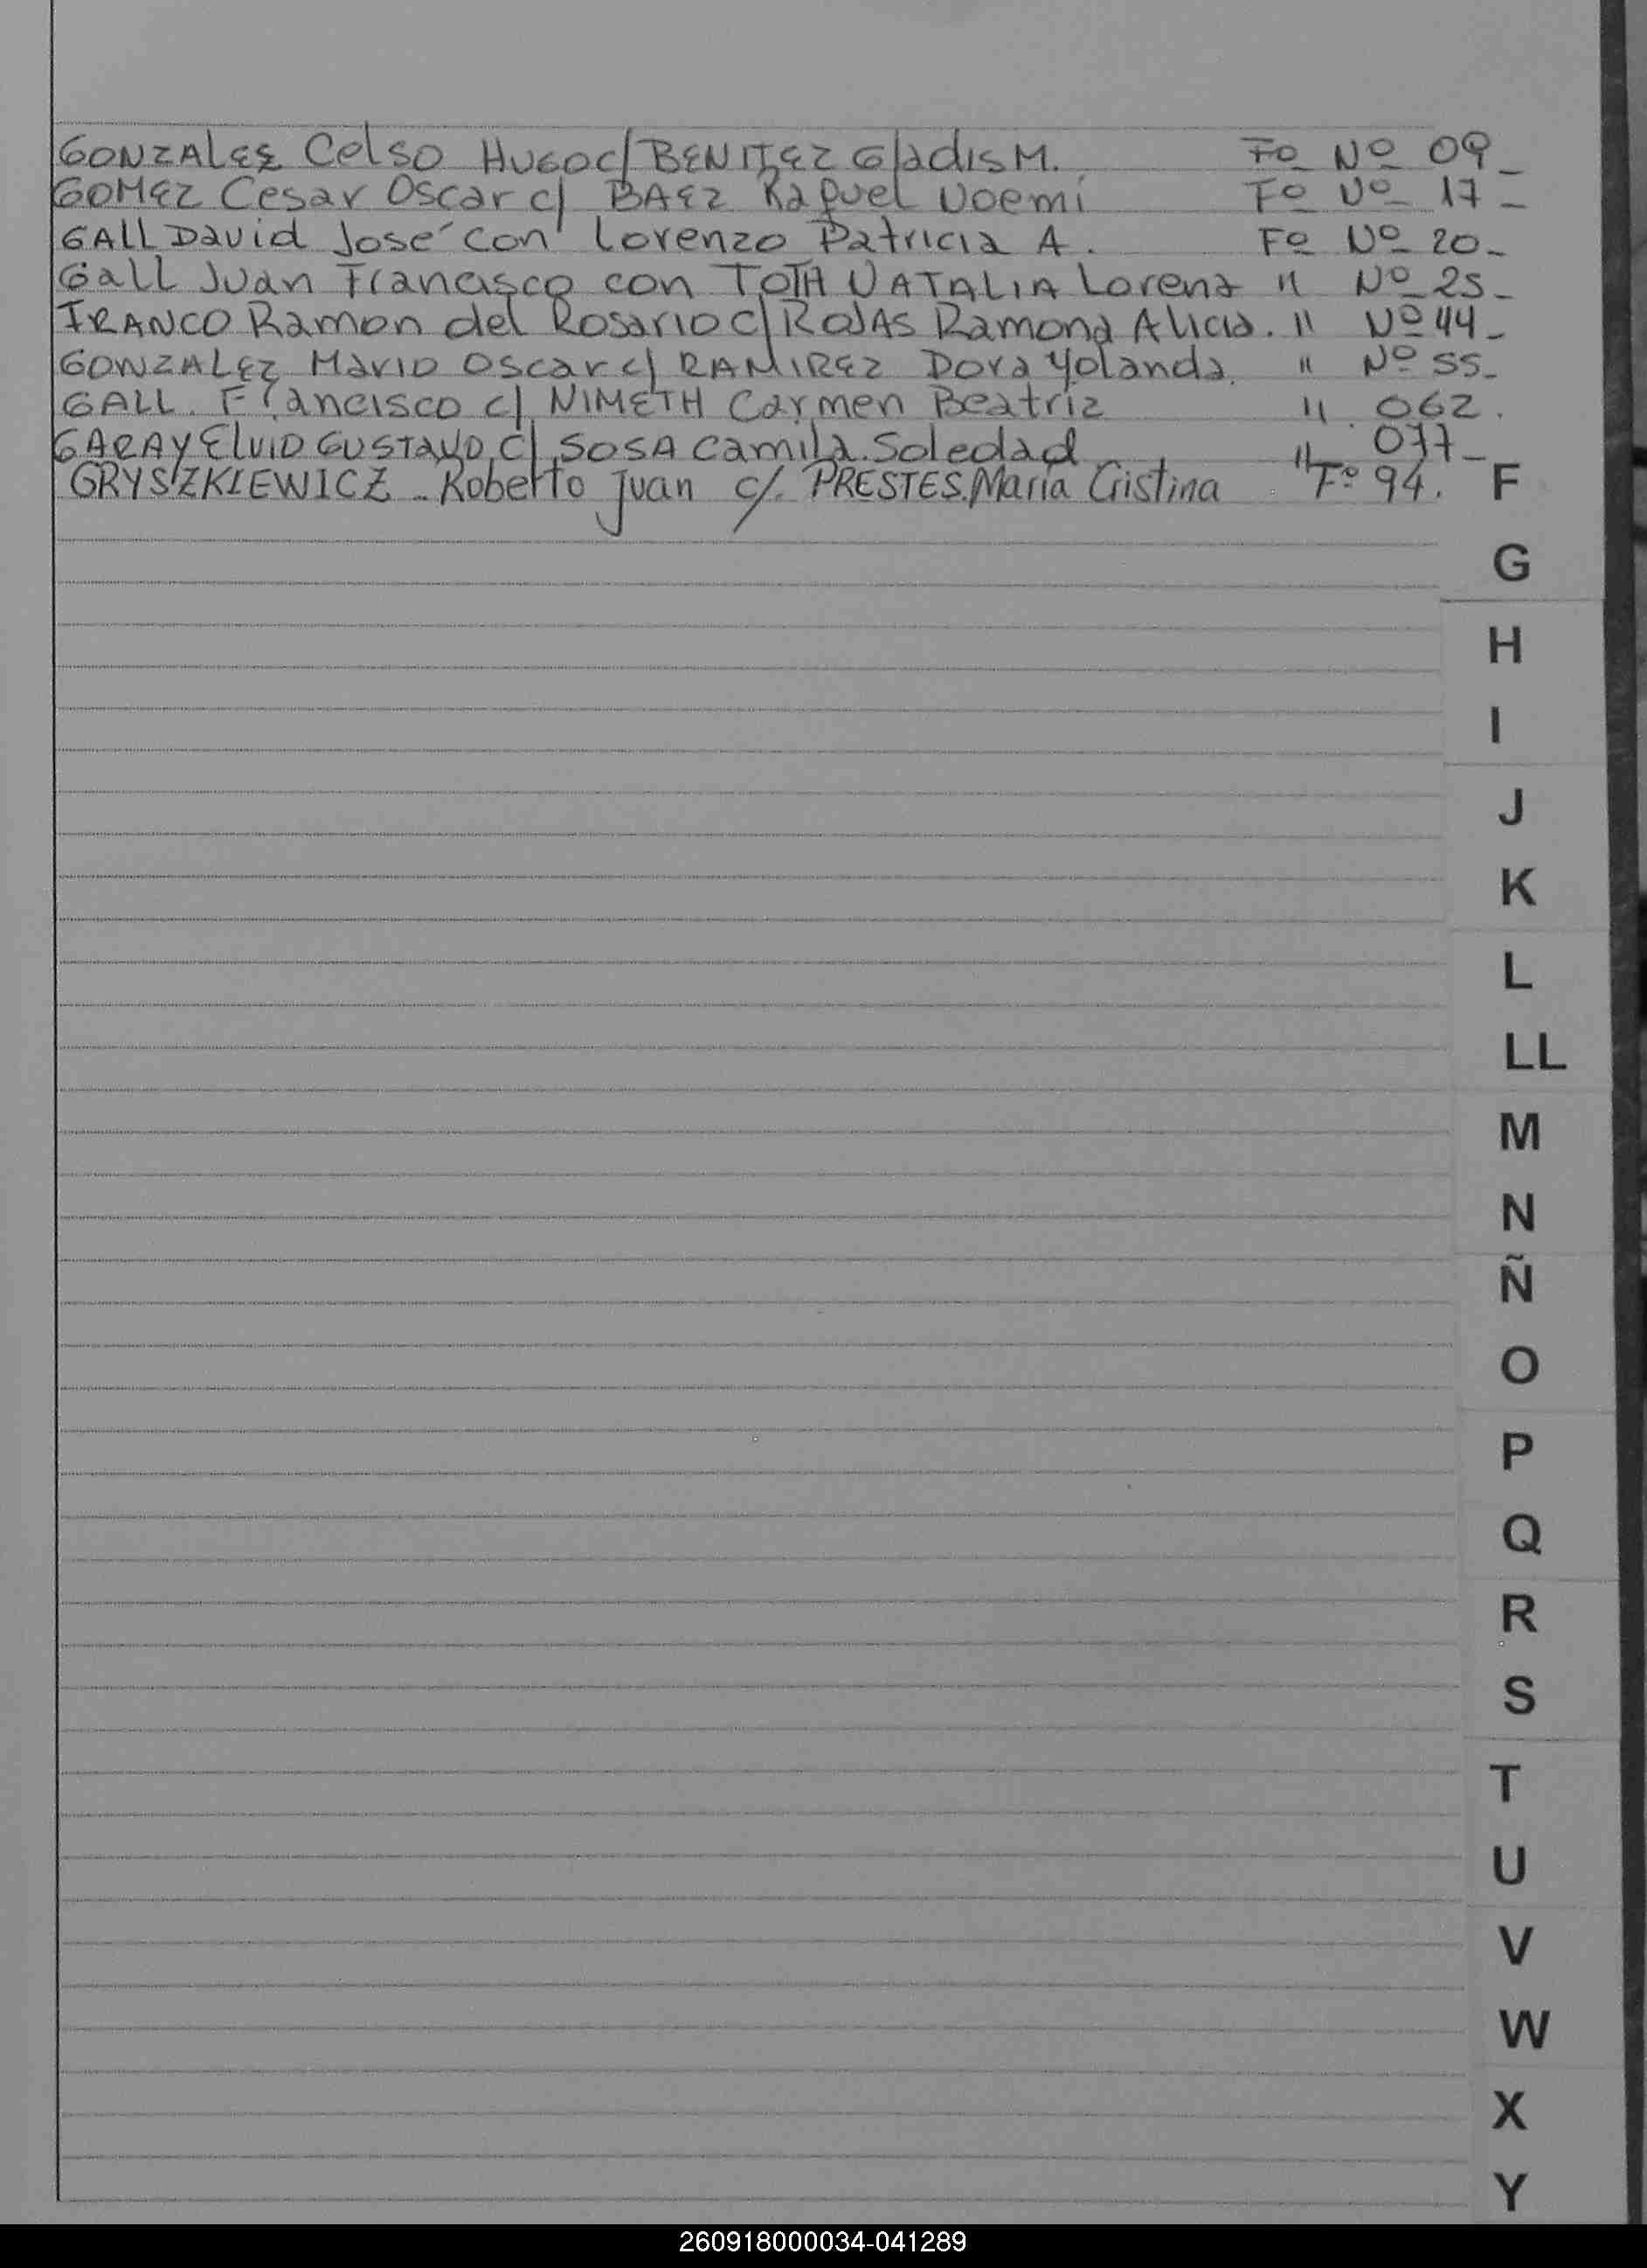 GONZALEZ Celso HUGO c/ BENITEZ Gladis M. Fo Nº 09_
GOMEZ Cesar Oscar c/ BAEZ Raquel Noemi Fo Nº 17_
GALL David José con Lorenzo Patricia A. Fo Nº 20_
Gall Juan Francisco con TOTH NATALIA Lorena " Nº 25_
FRANCO Ramon del Rosario c/ ROJAS Ramona Alicia. " Nº 44_
GONZALEZ Mario Oscar c/ RAMIREZ Dora Yolanda. " Nº 55_
GALL. Francisco c/ NIMETH Carmen Beatriz " 062.
GARAY ELVIO GUSTAVO c/ SOSA Camila Soledad " 077_
GRYSZKIEWICZ - Roberto Juan c/. PRESTES. María Cristina Fº 94.
F
G
H
I
J
K
L
LL
M
N
Ñ
O
P
Q
R
S
T
U
V
W
X
Y
260918000034-041289